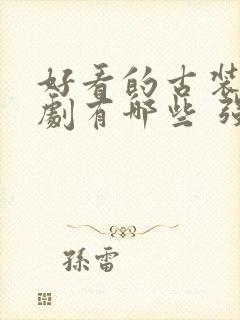 好看的古装
劇有哪些
孫雷